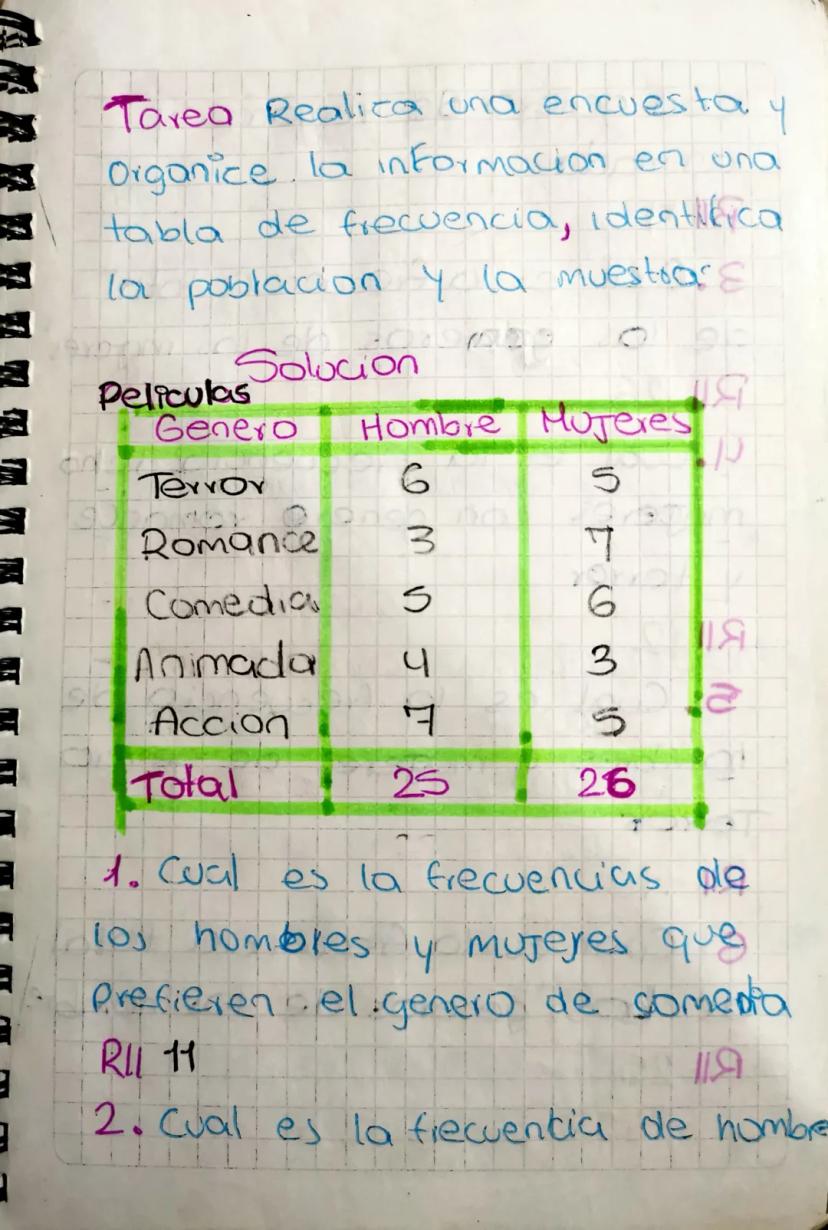 Tarea Realica una encuesta y
Organice la informacion en una
tabla de frecuencia, identifica
la poblacion y la muestra
Solucion
Peliculas
Genero Hombre Mujeres
Terror 6 5
Romance 3 7
Comedia 5 6
Animada 4 3
Accion 7 5
Total 25 26
1. Cual es la frecuencias de
los hombres y mujeres que
prefieren el genero de comedia
R// 11
2. Cual es la frecuencia de hombre